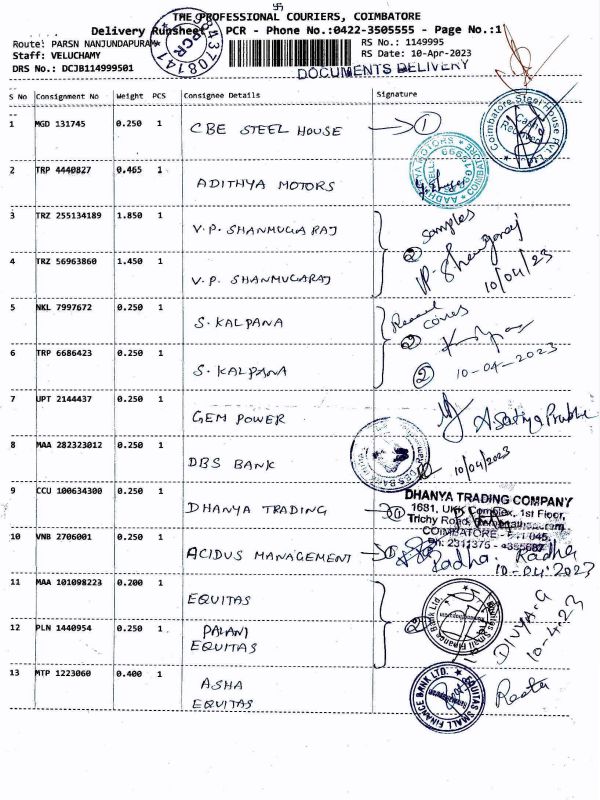 THE PROFESSIONAL COURIERS, COIMBATORE
Delivery Runsheet PCR - Phone No.:0422-3505555 - Page No.:1
Route: PARSN NANJUNDAPURAM
RS No.: 1149995
Staff: VELUCHAMY
RS Date: 10-Apr-2023
DRS No.: DCJB114999501
DOCUMENTS DELIVERY
S No Consignment No Weight PCS Consignee Details Signature
1 MGD 131745 0.250 1 CBE STEEL HOUSE 1
Coimbatore Steel House Pvt. Ltd.
2 TRP 4440827 0.465 1 ADITHYA MOTORS
AADHITYA MOTORS COIMBATORE
3 TRZ 255134189 1.850 1 V.P. SHANMUGARAJ
Samples
4 TRZ 56963860 1.450 1 V.P. SHANMUGARAJ
2 10/04/23
5 NKL 7997672 0.250 1 S. KALPANA
6 TRP 6686423 0.250 1 S. KALPANA
2 10-04-2023
7 UPT 2144437 0.250 1 GEM POWER
A Sathya Prabha
8 MAA 282323012 0.250 1 DBS BANK
10/04/2023
9 CCU 100634300 0.250 1 DHANYA TRADING
DHANYA TRADING COMPANY
1681, UKK Complex, 1st Floor,
Trichy Road,
COIMBATORE
10 VNB 2706001 0.250 1 ACIDUS MANAGEMENT
Radha. Radha
10-04-2023
11 MAA 101098223 0.200 1 EQUITAS
12 PLN 1440954 0.250 1 PALANI
EQUITAS
Equitas Small Finance Bank Ltd.
DIVYA-G
10-4-23
13 MTP 1223060 0.400 1 ASHA
EQUITAS
EQUITAS SMALL FINANCE BANK LTD.